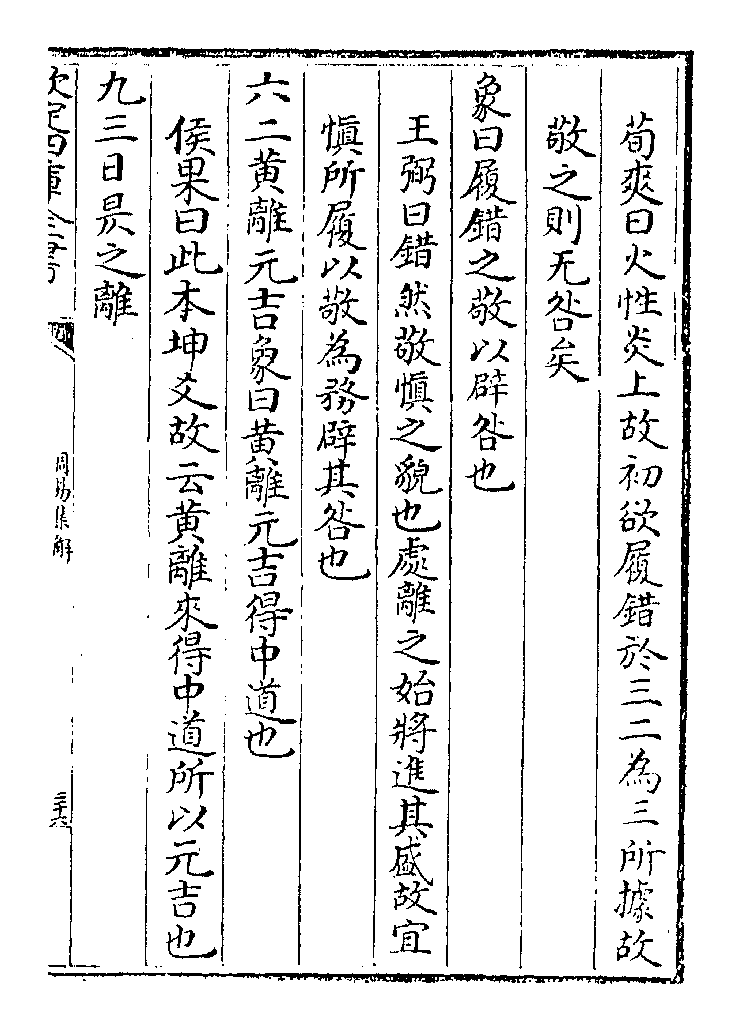 荀爽曰火性炎上故初欲履錯於三二為三所據故
敬之則无咎矣
象曰履錯之敬以辟咎也
王弼曰錯然敬慎之貌也處離之始將進其盛故宜
慎所履以敬為務辟其咎也
六二黄離元吉象曰黄離元吉得中道也
侯果曰此本坤爻故云黄離來得中道所以元吉也
九三日昃之離
欽定四庫全書
周易集解
三十六